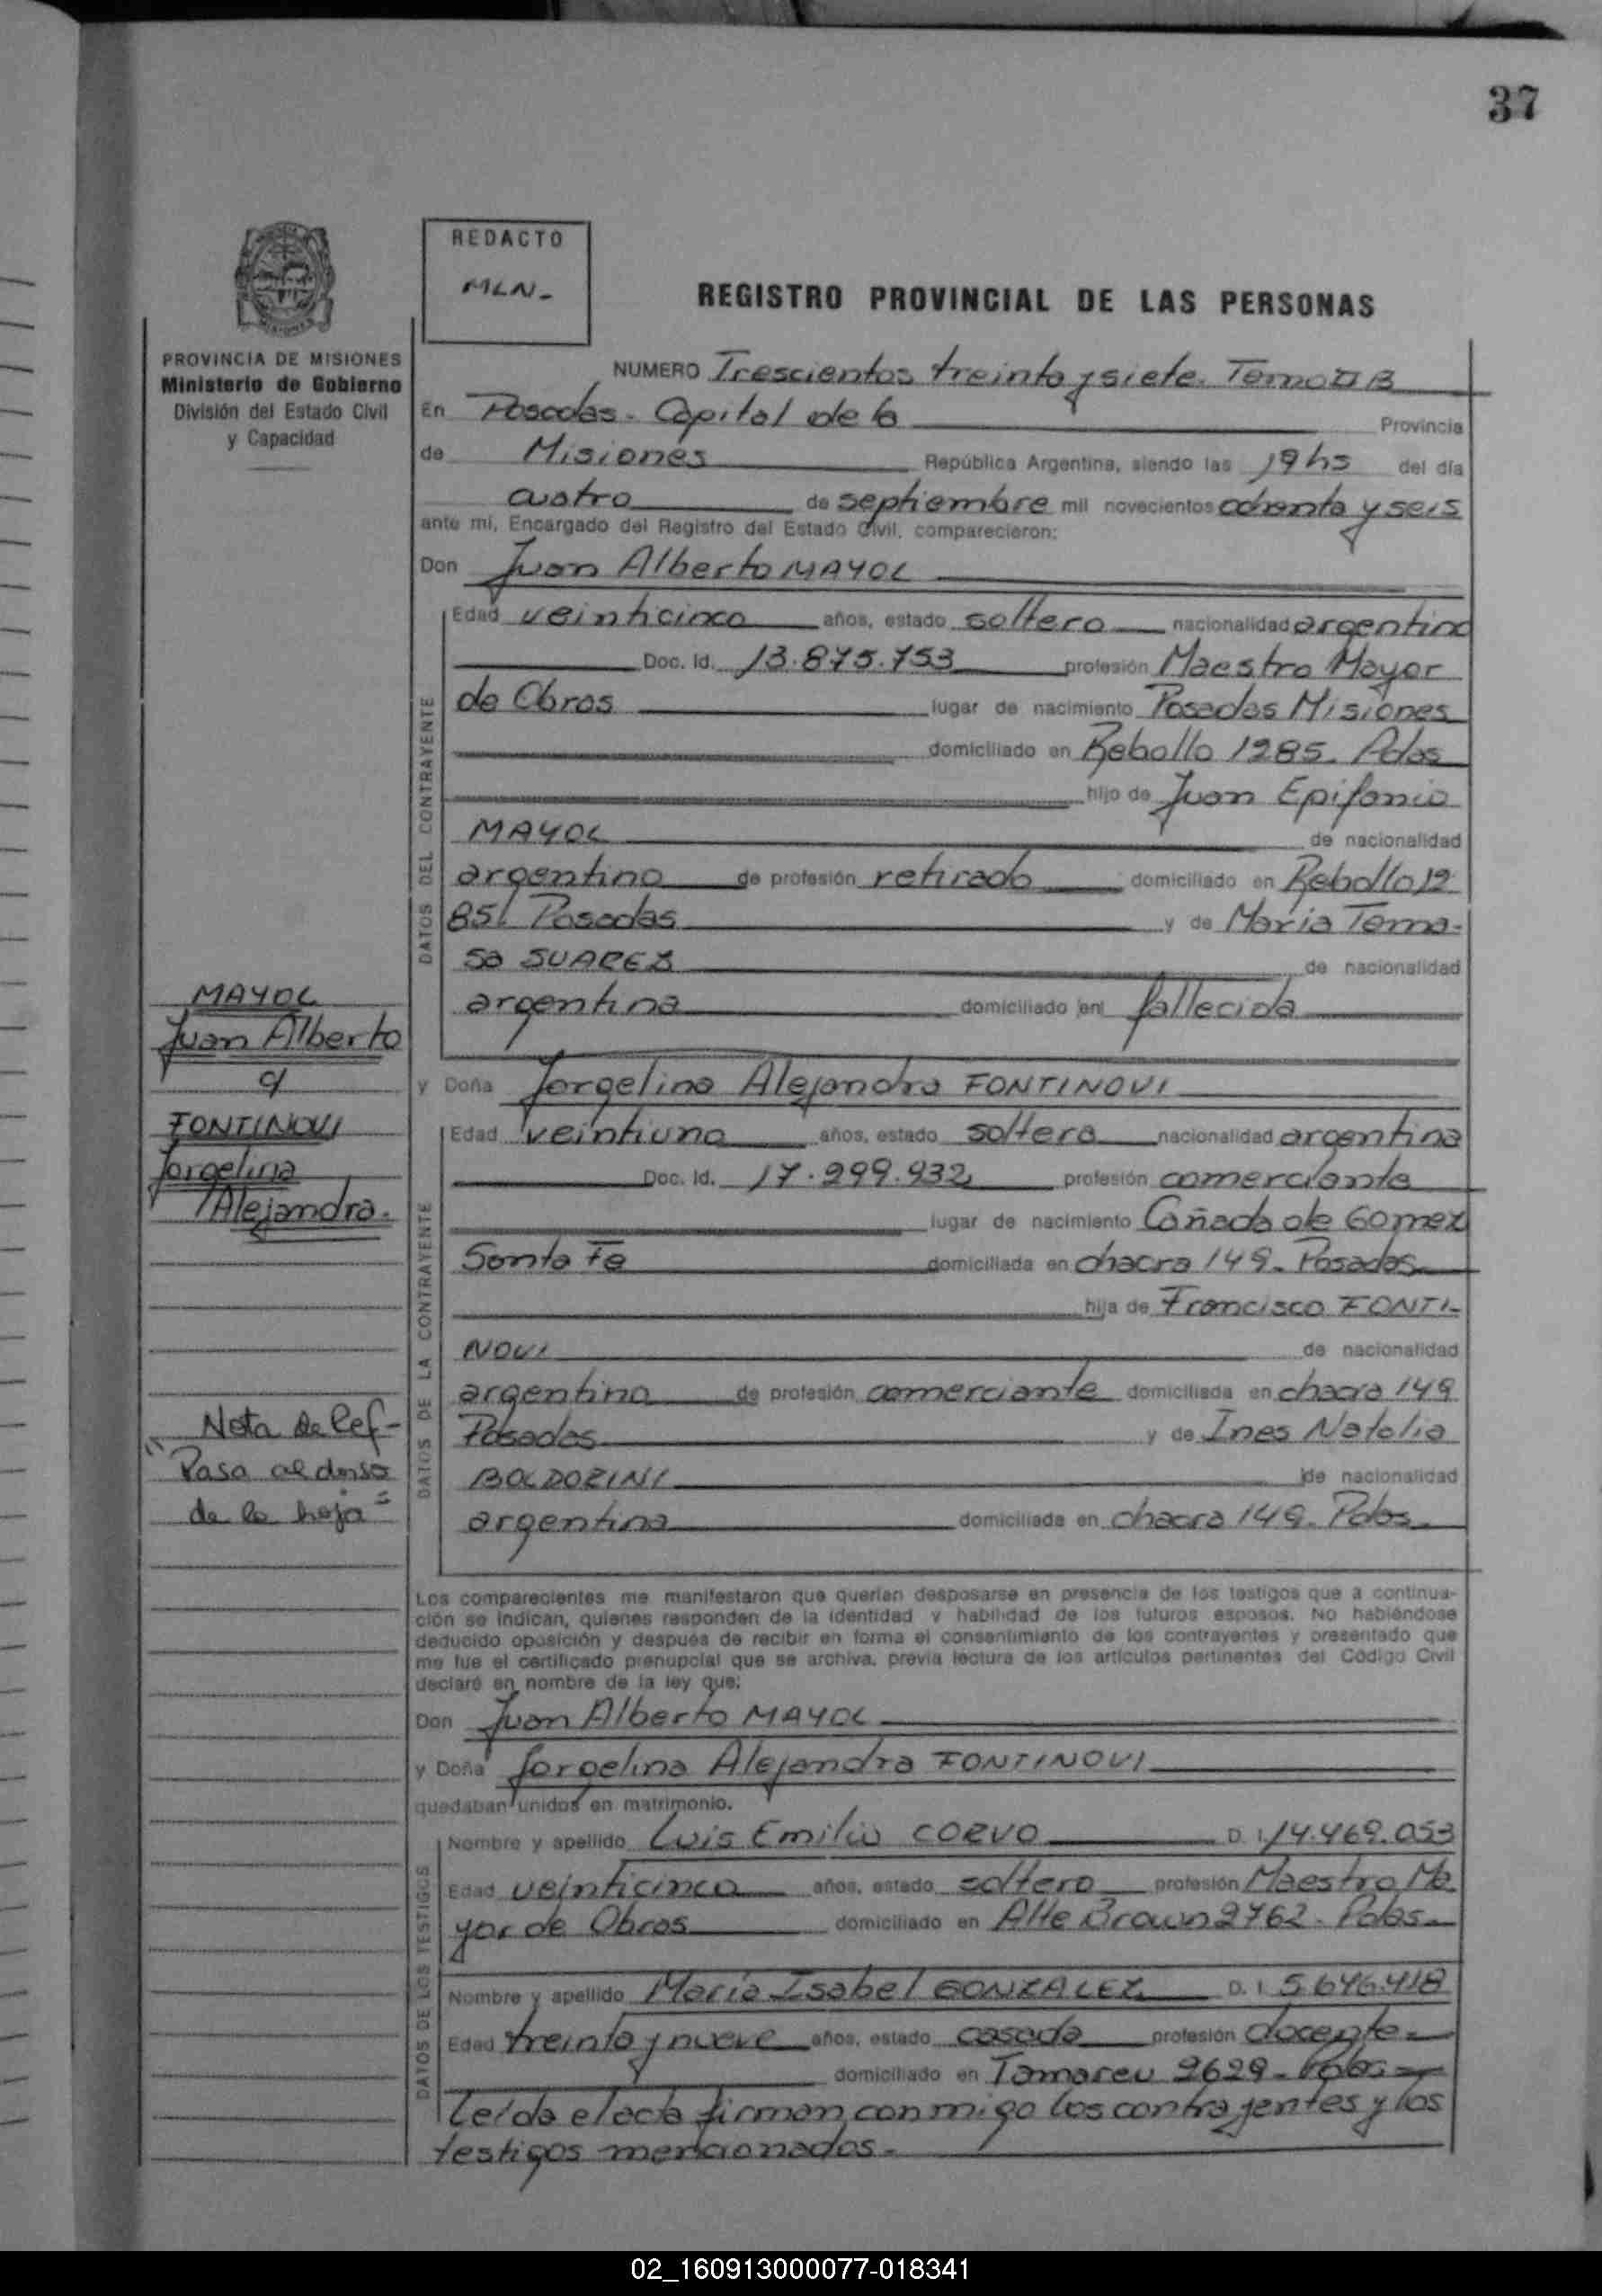 37
REDACTO
MLN-
REGISTRO PROVINCIAL DE LAS PERSONAS
PROVINCIA DE MISIONES
Ministerio de Gobierno
División del Estado Civil
y Capacidad
NUMERO Trescientos treinta y siete. Tomo II B
En Posadas - Capital de la Provincia
de Misiones República Argentina, siendo las 19hs del día
cuatro de septiembre mil novecientos ochenta y seis
ante mí, Encargado del Registro del Estado Civil, comparecieron:
Don Juan Alberto MAYOL
DATOS DEL CONTRAYENTE
Edad veinticinco años, estado soltero nacionalidad argentino
Doc. Id. 13.875.753 profesión Maestro Mayor
de Obras lugar de nacimiento Posadas Misiones
domiciliado en Rebollo 1285. Pdas
hijo de Juan Epifanio
MAYOL de nacionalidad
argentino de profesión retirado domiciliado en Rebollo 12
85. Posadas y de María Toma-
sa SUAREZ de nacionalidad
argentina domiciliado en fallecida
MAYOL
Juan Alberto
c/
FONTINOVI
Jorgelina
Alejandra.
y Doña Jorgelina Alejandra FONTINOVI
DATOS DE LA CONTRAYENTE
Edad veintiuno años, estado soltera nacionalidad argentina
Doc. Id. 17.299.932 profesión comerciante
lugar de nacimiento Cañada de Gomez
Santa Fe domiciliada en chacra 149. Posadas
hija de Francisco FONTI-
NOVI de nacionalidad
argentino de profesión comerciante domiciliada en chacra 149
Posadas y de Ines Natalia
BOLDORINI de nacionalidad
argentina domiciliada en chacra 149. Pdas.
Nota de Ref-
"Pasa al dorso
de la hoja"
Los comparecientes me manifestaron que querían desposarse en presencia de los testigos que a continua-
ción se indican, quienes responden de la identidad y habilidad de los futuros esposos. No habiéndose
deducido oposición y después de recibir en forma el consentimiento de los contrayentes y presentado que
me fue el certificado prenupcial que se archiva, previa lectura de los artículos pertinentes del Código Civil
declaré en nombre de la ley que:
Don Juan Alberto MAYOL
y Doña Jorgelina Alejandra FONTINOVI
quedaban unidos en matrimonio.
DATOS DE LOS TESTIGOS
Nombre y apellido Luis Emilio CORVO D. I. 14.469.053
Edad veinticinco años, estado soltero profesión Maestro Ma
yor de Obras domiciliado en Alte Brown 2762. Pdas.
Nombre y apellido María Isabel GONZALEZ D. I. 5.646.418
Edad treinta y nueve años, estado casada profesión docente-
domiciliado en Tamareu 2629- Pdas-
Leída el acta firman con migo los contrayentes y los
testigos mencionados-
02_160913000077-018341